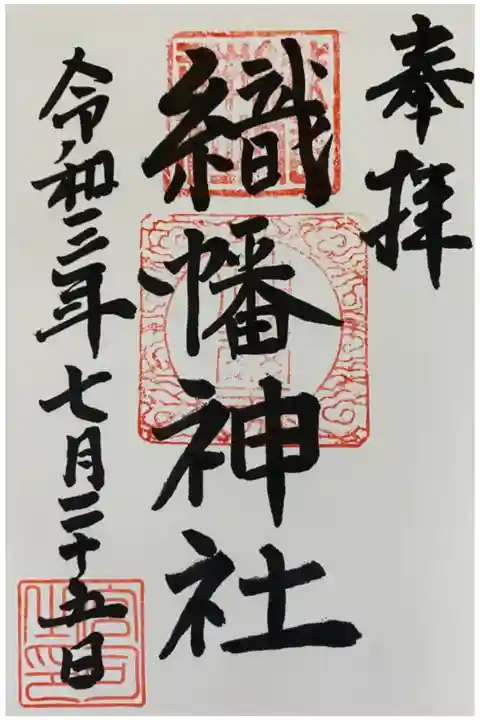 奉拝
織幡神社
令和三年七月二十五日